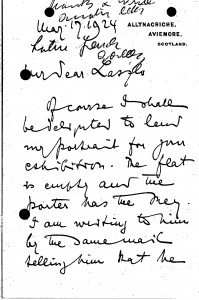 May 17. 1924
ALLTNACRICHE,
AVIEMORE,
SCOTLAND.
My dear Laszlo
Of course I shall
be delighted to lend
my portrait for your
exhibition. The flat
is empty and the
porter has the key.
I am writing to him
by the same mail
telling him that he